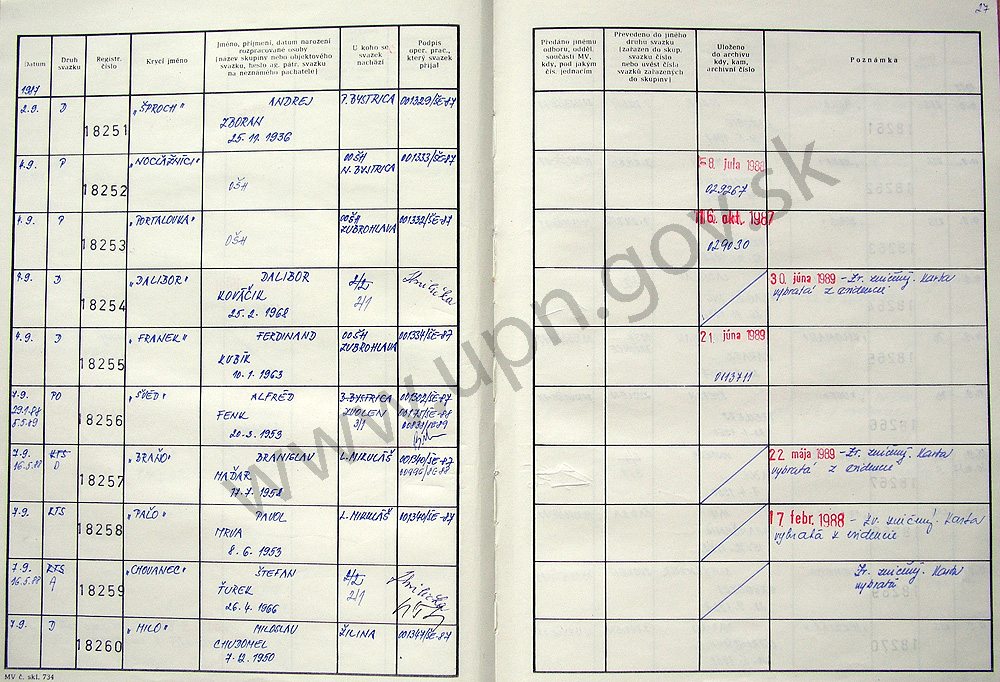 27
Datum
Druh svazku
Registr. číslo
Krycí jméno
Jméno, příjmení, datum narození rozpracované osoby
(název skupiny nebo objektového svazku, heslo ag. pátr. svazku na neznámého pachatele)
U koho se svazek nachází
Podpis oper. prac., který svazek přijal
Předáno jinému odboru, odděl. součásti MV, kdy, pod jakým čís. jednacím
Převedeno do jiného druhu svazku
(zařazen do skup. svazku číslo nebo uvést čísla svazků zařazených do skupiny)
Uloženo do archivu kdy, kam, archivní číslo
Poznámka
1987
2.9. D 18251 „ŠPROCH" ANDREJ P. BYSTRICA 001329/ŠE-87
ZBORAN
25. 11. 1936
4.9. P 18252 „NOCĽÁŽNÍCI" OOŠH 001333/ŠE-87
N. BYSTRICA
OŠH
8. júla 1988
029267
4.9. P 18253 „PORTALOVKA" OOŠH 001332/ŠE-87
ZUBROHLAVA
OŠH
16. okt. 1987
029030
4.9. D 18254 „DALIBOR" DALIBOR
KOVÁČIK 2/1
25. 2. 1968
30. júna 1989 - Zv. zničený. Karta
vybratá z evidencie
4.9. D 18255 „FRANEK" FERDINAND OOŠH 001334/ŠE-87
ZUBROHLAVA
KUBÍK
10. 1. 1963
21. júna 1989
7.9. PO 18256 „ŠVÉD" ALFRÉD B. BYSTRICA 001302/ŠE-87
29.1.88 ZVOLEN
5.5.89 FENK 3/1
20. 3. 1953
7.9. KTS 18257 „BRAŇO" BRANISLAV L. MIKULÁŠ 001340/ŠE-87
16.5.88 D
MAĎAR
17. 7. 1958
22. mája 1989 - Zv. zničený. Karta
vybratá z evidencie
7.9. KTS 18258 „PAĽO" PAVOL L. MIKULÁŠ 001340/ŠE-87
MRVA
8. 6. 1953
17. febr. 1988 - Zv. zničený. Karta
vybratá z evidencie
7.9. KTS 18259 „CHOVANEC" ŠTEFAN
16.5.88 A
ŤUREK 2/1
26. 4. 1966
Zv. zničený. Karta
vybratá
7.9. D 18260 „MILO" MILOSLAV ŽILINA 001347/ŠE-87
CHUDOMEL
7. 12. 1950
MV č. skl. 734
www.upn.gov.sk